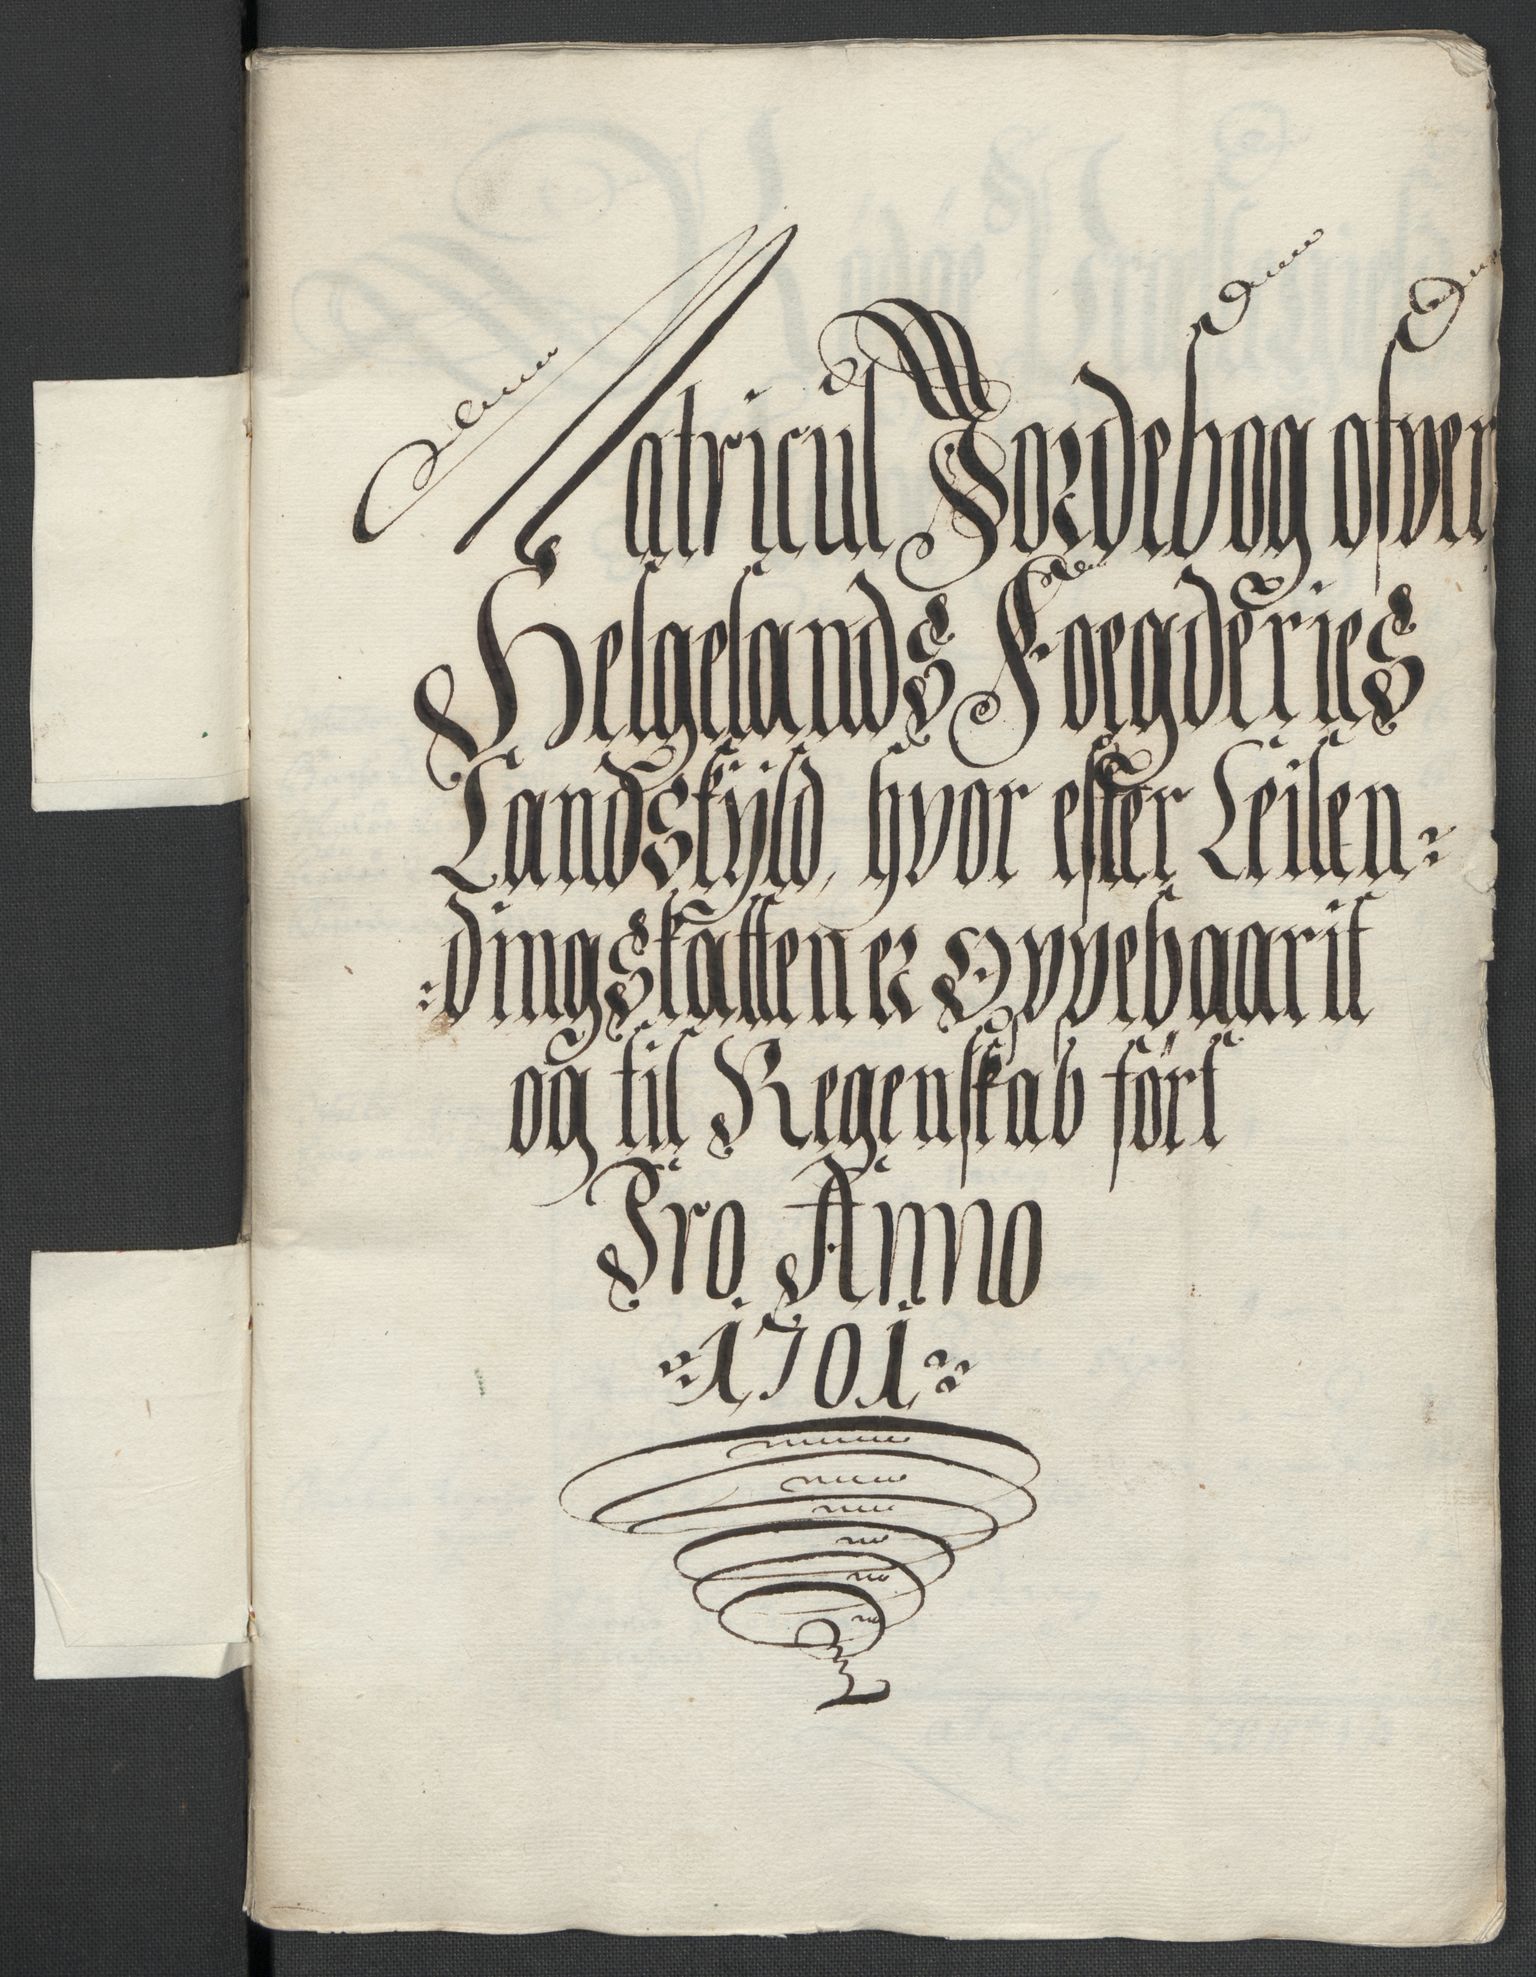 Matricul Jordebog ofver
Helgelands Foegderies
Landskÿld, hvor efter Leilen=
=dingskatten er Oppebaarit
og til Regenskab ført
Pro Anno
1701